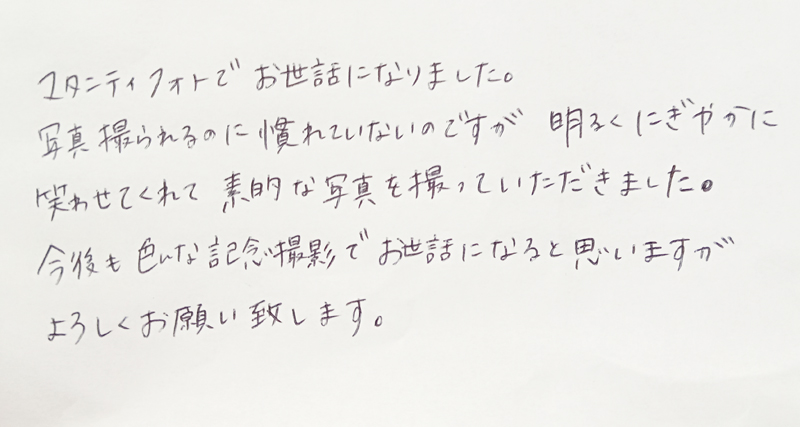 マタニティフォトでお世話になりました。
写真撮られるのに慣れていないのですが 明るくにぎやかに
笑わせてくれて 素的な写真を撮っていただきました。
今後も色んな記念撮影でお世話になると思いますが
よろしくお願い致します。